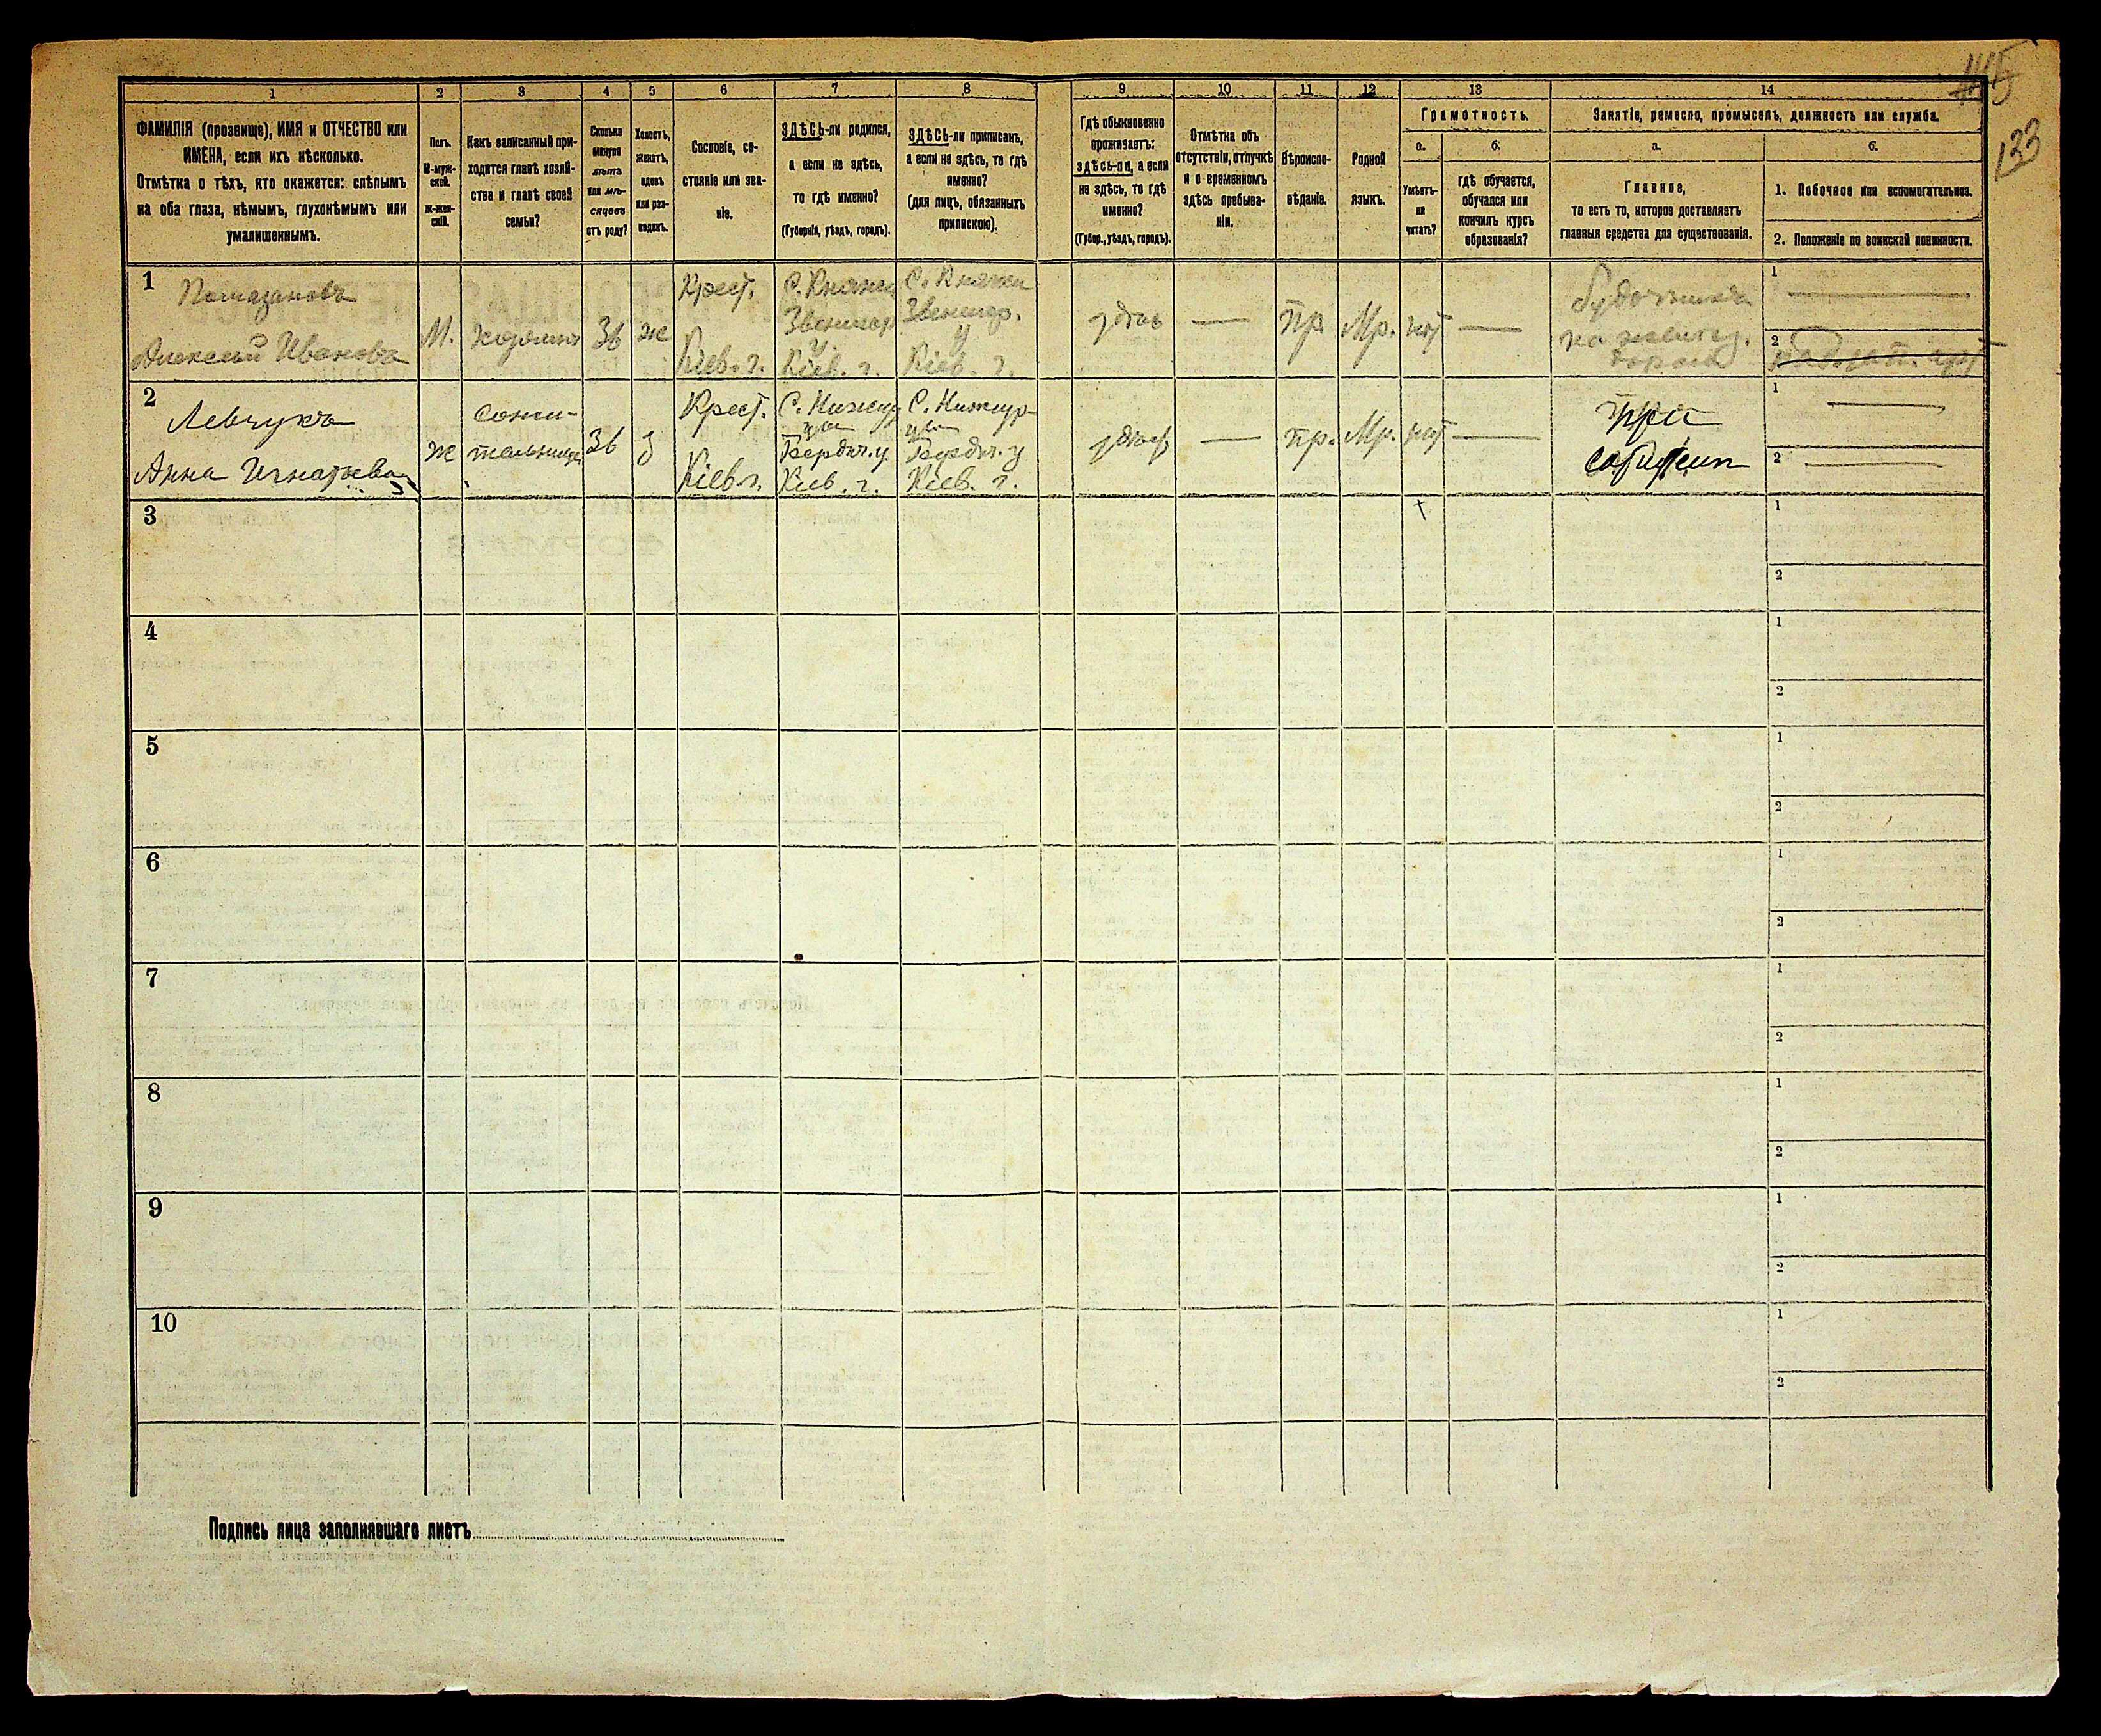 115
133
1
2
3
4
5
6
7
8
9
10
11
12
13
14
ФАМИЛІЯ (прозвище), ИМЯ и ОТЧЕСТВО или
ИМЕНА, если ихъ нѣсколько.
Отмѣтка о тѣхъ, кто окажется: слѣпымъ
на оба глаза, нѣмымъ, глухонѣмымъ или
умалишеннымъ.
Полъ.
М-муж-
ской.
Ж-жен-
скій.
Какъ записанный при-
ходится главѣ хозяй-
ства и главѣ своей
семьи?
Сколько
минуло
лѣтъ
или мѣ-
сяцевъ
отъ роду?
Холостъ,
женатъ,
вдовъ
или раз-
веденъ.
Сословіе, со-
стояніе или зва-
ніе.
ЗДѢСЬ-ли родился,
а если не здѣсь,
то гдѣ именно?
(Губернія, уѣздъ, городъ).
ЗДѢСЬ-ли приписанъ,
а если не здѣсь, то гдѣ
именно?
(для лицъ, обязанныхъ
припискою).
Гдѣ обыкновенно
проживаетъ:
здѣсь-ли, а если
не здѣсь, то гдѣ
именно?
(Губер., уѣздъ, городъ).
Отмѣтка объ
отсутствіи, отлучкѣ
и о временномъ
здѣсь пребыва-
ніи.
Вѣроиспо-
вѣданіе.
Родной
языкъ.
Грамотность.
а.
Умѣетъ-
ли
читать?
б.
гдѣ обучается,
обучался или
кончилъ курсъ
образованія?
Занятіе, ремесло, промыселъ, должность или служба.
а.
Главное,
то есть то, которое доставляетъ
главныя средства для существованія.
б.
1. Побочное или вспомогательное.
2. Положеніе по воинской повинности.
1
Алексей Ивановъ
М.
хозяинъ
36
ж
Крест.
Кіев. г.
С. Княжи
Звенигор
у.
Кіев. г.
С. Княжи
Звенигор.
у
Кіев. г.
здѣсь
—
пр.
Мр.
нѣт
—
будочникъ
на желѣзн.
дорогѣ
1
2
2
Левчукъ
Анна Игнатьева
ж
сожи-
тельница
36
з
Крест.
Кіев г.
С. Нижгур
цы
Бердич. у
Кіев. г.
С. Нижгур
цы
Бердич. у
Кіев. г.
здѣсь
—
пр.
Мр.
нѣт
—
при
1
2
3
1
2
4
1
2
5
1
2
6
1
2
7
1
2
8
1
2
9
1
2
10
1
2
Подпись лица заполнявшаго листъ